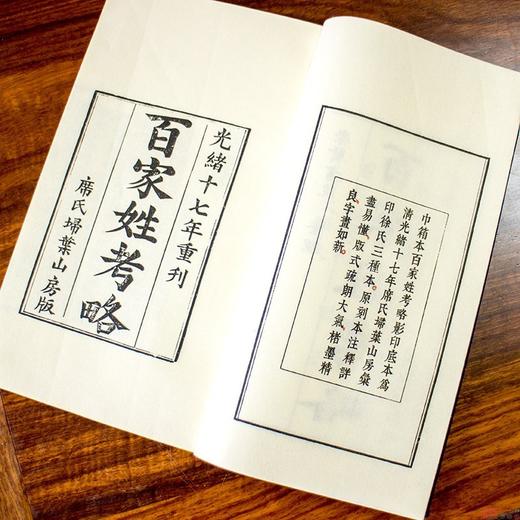 中箱本百家姓考略影印底本為
清光緒十七年席氏埽葉山房彙
印徐氏三種本。原刻本注釋詳
盡易懂。版式疏朗大氣。楮墨精
良。字畫如新。
光緒十七年重刊
百家姓考略
席氏埽葉山房版